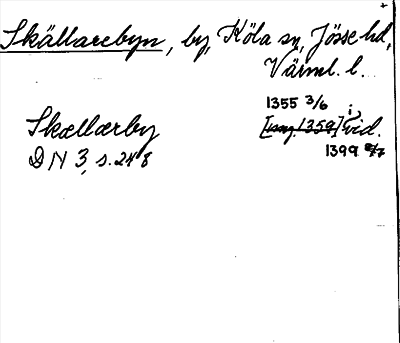 +
Skällarebyn, by, Köla sn, Jösse hd,
Värml. l.
1355 3/6
Skællærby [omkr. 1359] i vid.
DN 3, s. 248 1399 8/7